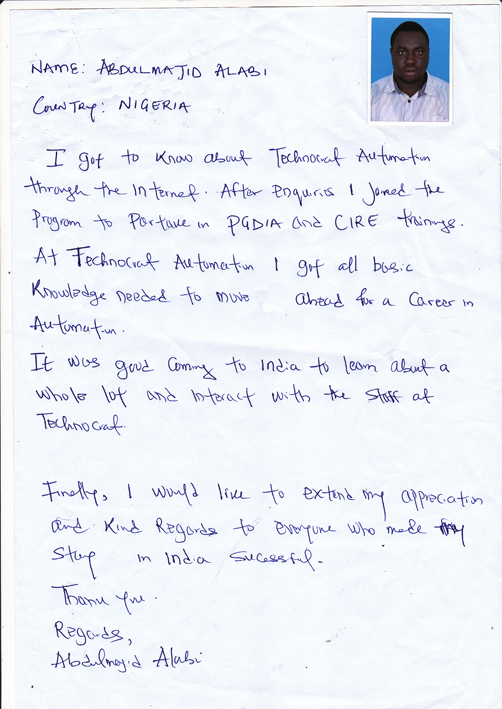 NAME: ABDULMAJID ALABI
COUNTRY: NIGERIA
I got to know about Technocrat Automation
through the Internet. After enquiries I joined the
Program to Partake in PGDIA and CIRE trainings.
At Technocrat Automation I got all basic
Knowledge needed to move ahead for a Career in
Automation.
It was good Coming to India to learn about a
whole lot and interact with the Staff at
Technocrat.
Finally, I would like to extend my appreciation
and Kind Regards to everyone who made my
Stay in India Sucessful.
Thank you.
Regards,
Abdulmajid Alabi